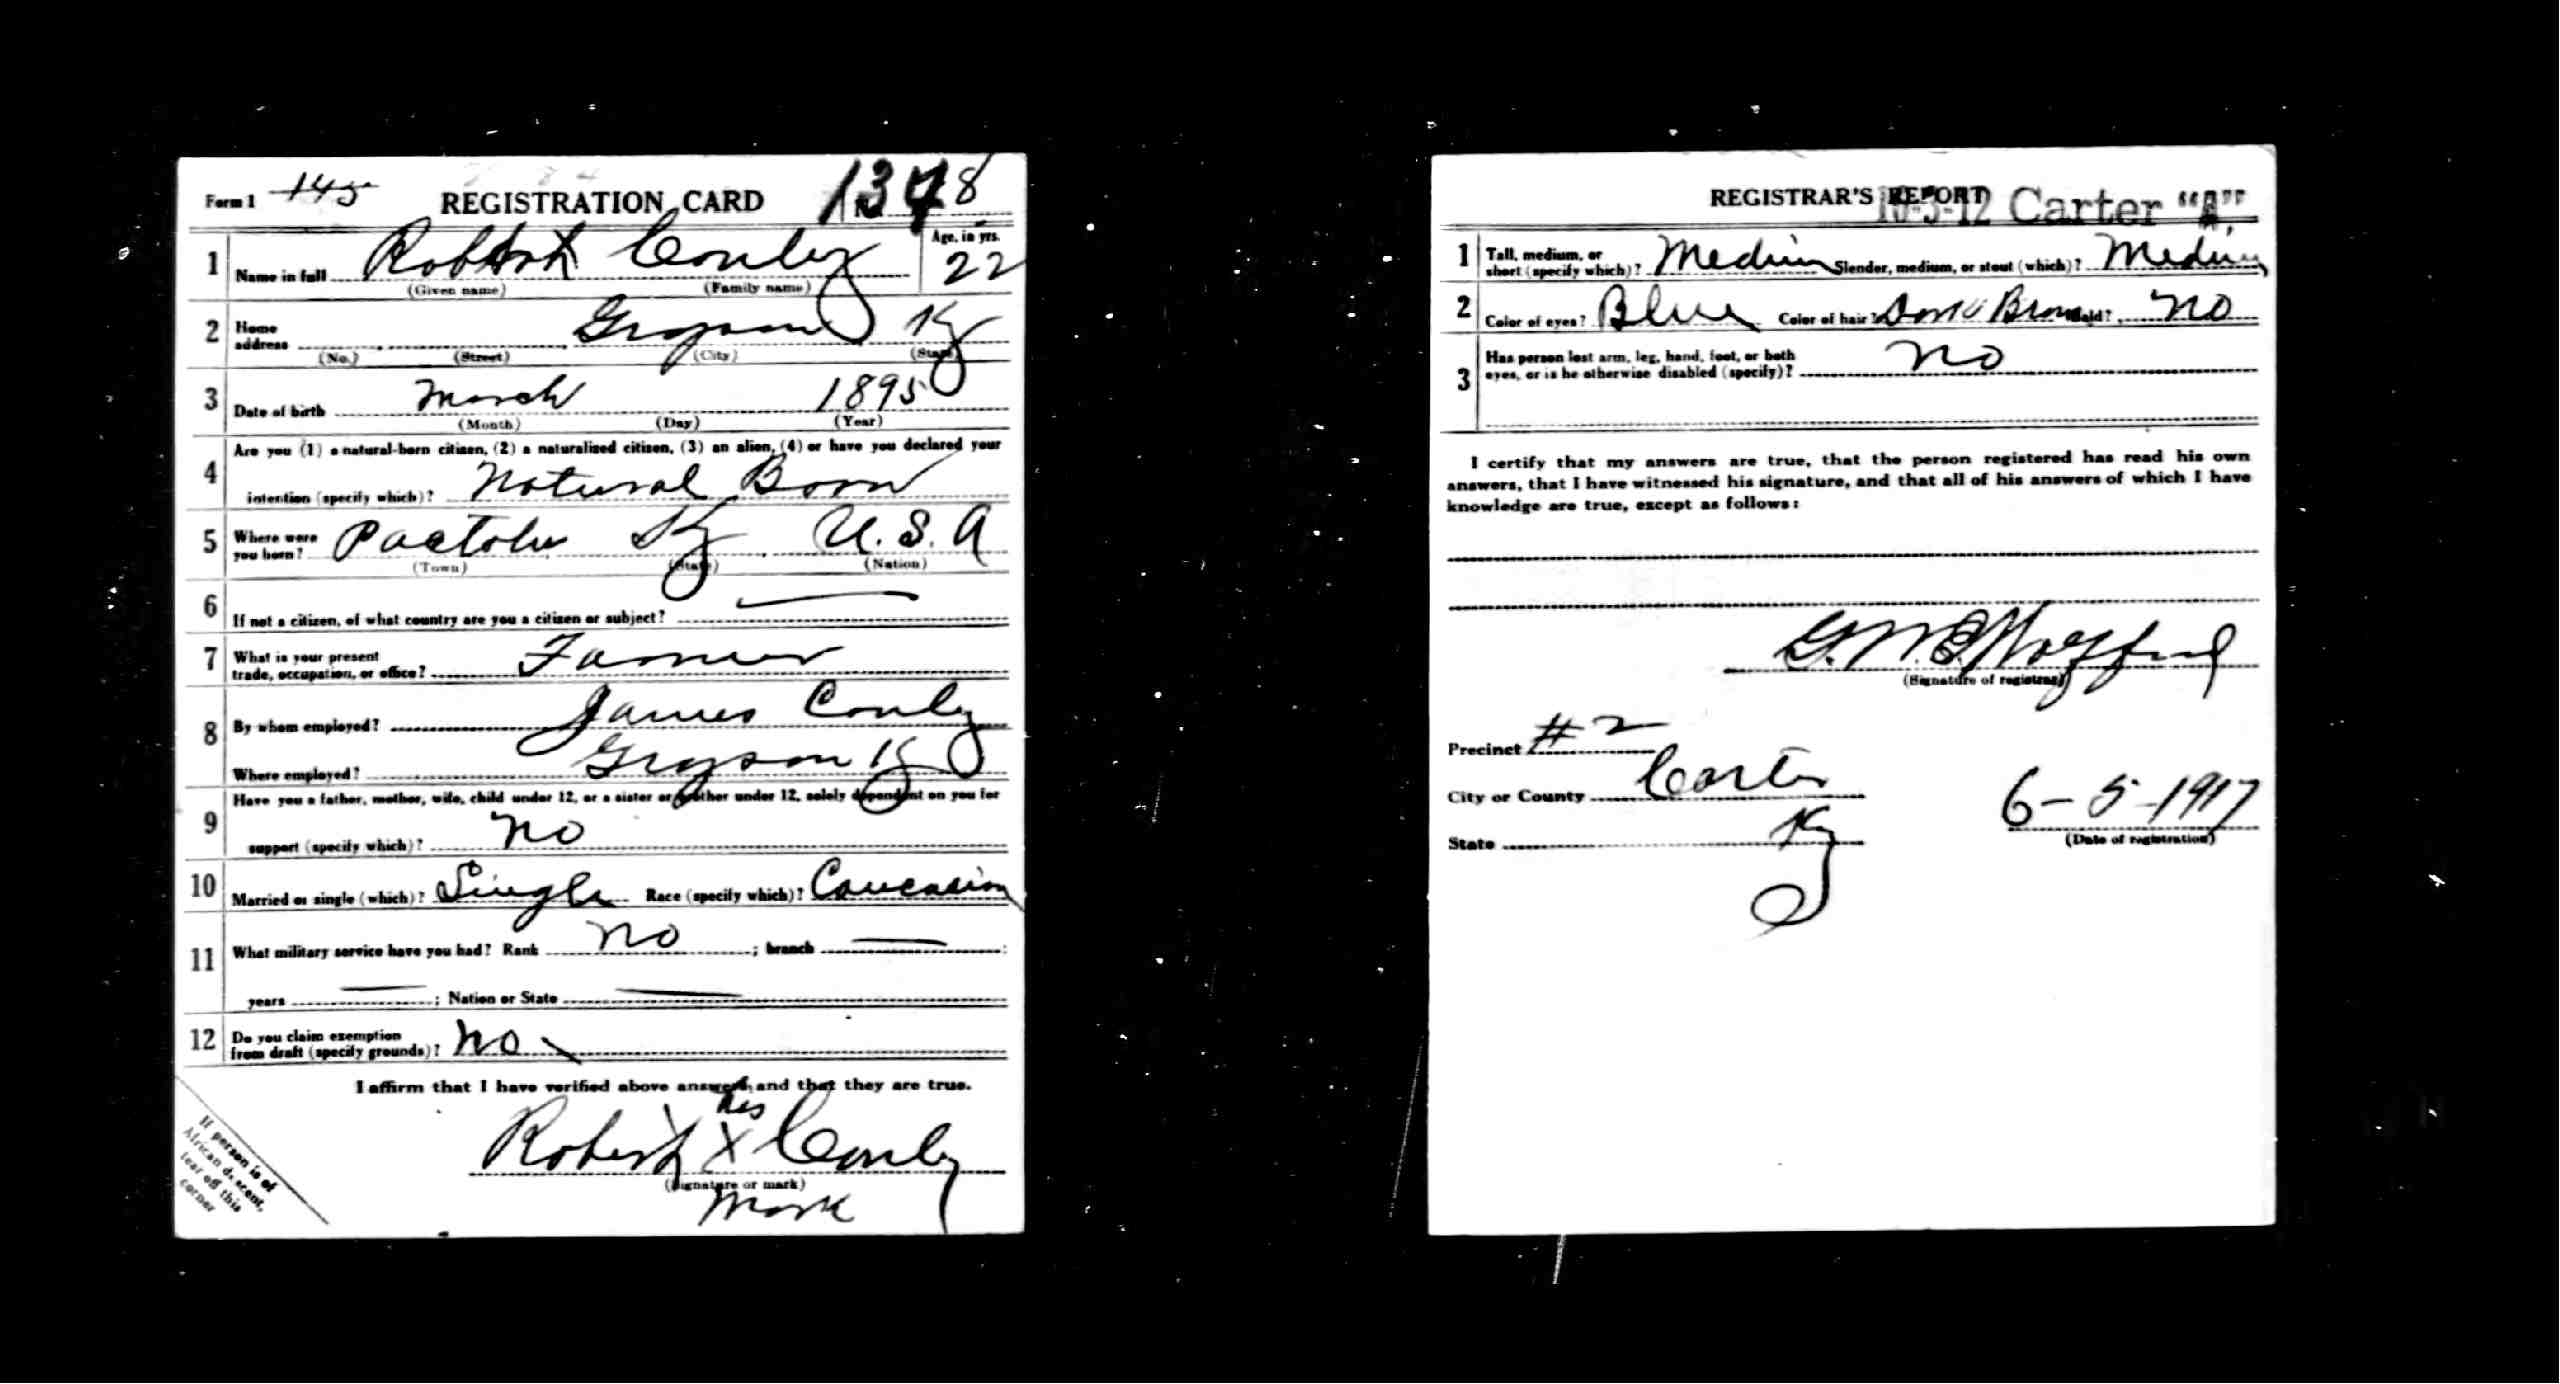 Form 1 145 REGISTRATION CARD No. 8
1 Name in full Robert Conley Age, in yrs. 22
(Given name) (Family name)
2 Home address Grayson Ky
(No.) (Street) (City) (State)
3 Date of birth March 1895
(Month) (Day) (Year)
4 Are you (1) a natural-born citizen, (2) a naturalized citizen, (3) an alien, (4) or have you declared your
intention (specify which)? Natural Born
5 Where were you born? Pactolus Ky U.S.A
(Town) (State) (Nation)
6 If not a citizen, of what country are you a citizen or subject?
7 What is your present trade, occupation, or office? Farmer
8 By whom employed? James Conley
Where employed? Grayson Ky
9 Have you a father, mother, wife, child under 12, or a sister or brother under 12, solely dependent on you for
support (specify which)? No
10 Married or single (which)? Single Race (specify which)? Caucasian
11 What military service have you had? Rank No ; branch
years ; Nation or State
12 Do you claim exemption from draft (specify grounds)? No
I affirm that I have verified above answers and that they are true.
his
Robert X Conley
(Signature or mark)
mark
If person is of
African descent,
tear off this
corner
REGISTRAR'S REPORT Carter "A"
1 Tall, medium, or short (specify which)? Medium Slender, medium, or stout (which)? Medium
2 Color of eyes? Blue Color of hair? Dark Brown Bald? No
3 Has person lost arm, leg, hand, foot, or both
eyes, or is he otherwise disabled (specify)? No
I certify that my answers are true, that the person registered has read his own
answers, that I have witnessed his signature, and that all of his answers of which I have
knowledge are true, except as follows:
(Signature of registrar)
Precinct #2
City or County Carter
State Ky
6-5-1917
(Date of registration)